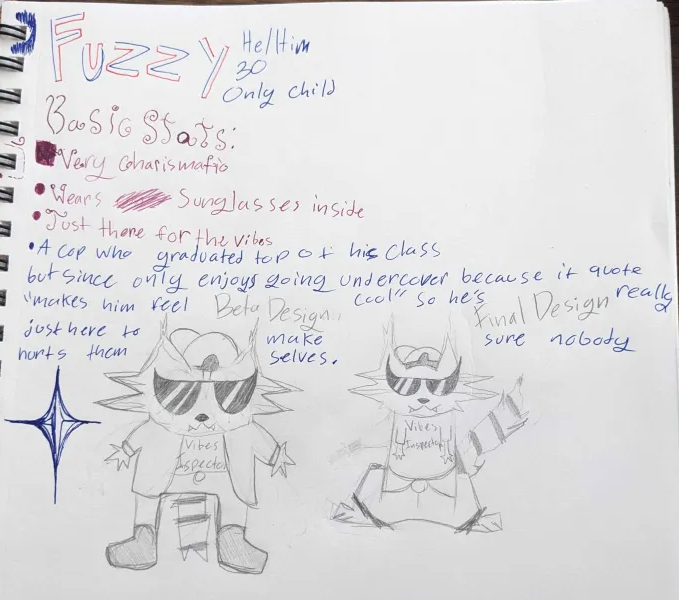 Fuzzy
He/Him
30
Only child
Basic Stats:
Very Coharismatic
Wears Sunglasses inside
Just there for the vibes
• A cop who graduated top of his class
but since only enjoys going undercover because it quote
"makes him feel cool" so he's really
just here to make sure nobody
hurts them selves.
Beta Design.
Final Design
Vibes
Inspector
Vibes
Inspector